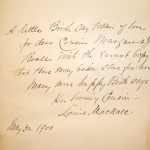 A little Birth Day token of love
for dear Cousin Margaret
Beall with the earnest hope
that there may be in store for her
many more happy Birth days
Her loving Cousin
Louis Mackall
May 30 1900